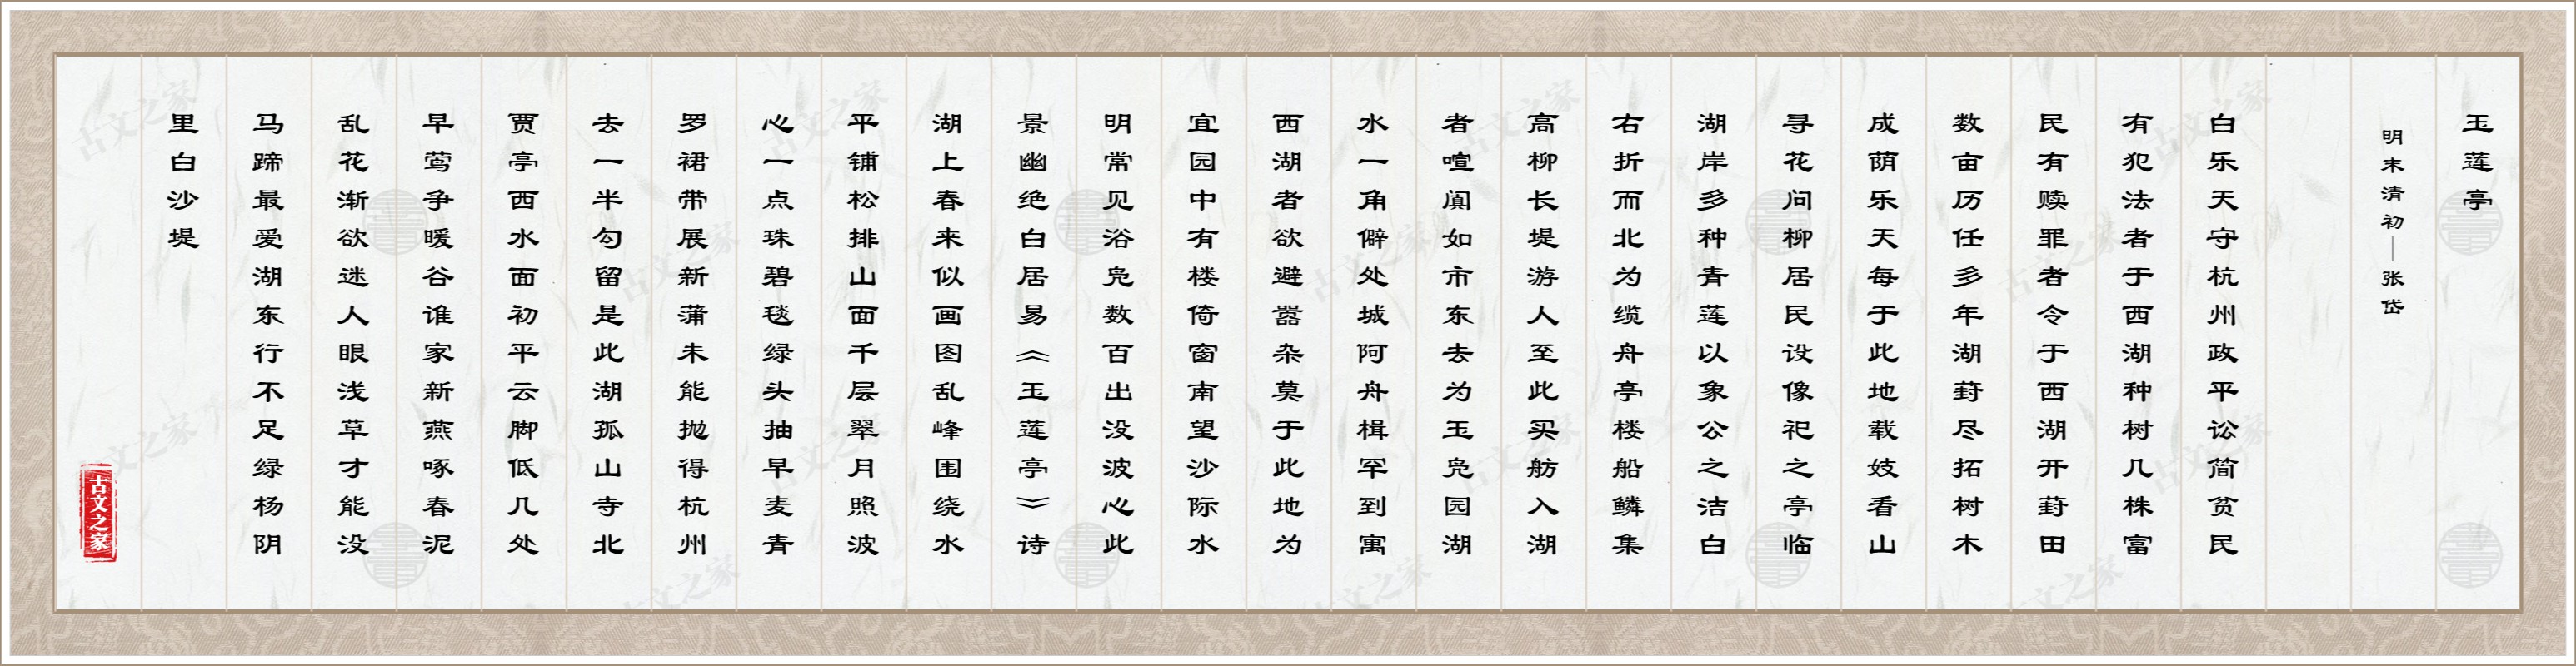 玉莲亭
明末清初—张岱
白乐天守杭州政平讼简贫民
有犯法者于西湖种树几株富
民有赎罪者令于西湖开葑田
数亩历任多年湖葑尽拓树木
成荫乐天每于此地载妓看山
寻花问柳居民设像祀之亭临
湖岸多种青莲以象公之洁白
右折而北为缆舟亭楼船鳞集
高柳长堤游人至此买舫入湖
者喧阗如市东去为玉凫园湖
水一角僻处城阿舟楫罕到寓
西湖者欲避嚣杂莫于此地为
宜园中有楼倚窗南望沙际水
明常见浴凫数百出没波心此
景幽绝白居易《玉莲亭》诗
湖上春来似画图乱峰围绕水
平铺松排山面千层翠月照波
心一点珠碧毯绿头抽早麦青
罗裙带展新蒲未能抛得杭州
去一半勾留是此湖孤山寺北
贾亭西水面初平云脚低几处
早莺争暖谷谁家新燕啄春泥
乱花渐欲迷人眼浅草才能没
马蹄最爱湖东行不足绿杨阴
里白沙堤
古文之家